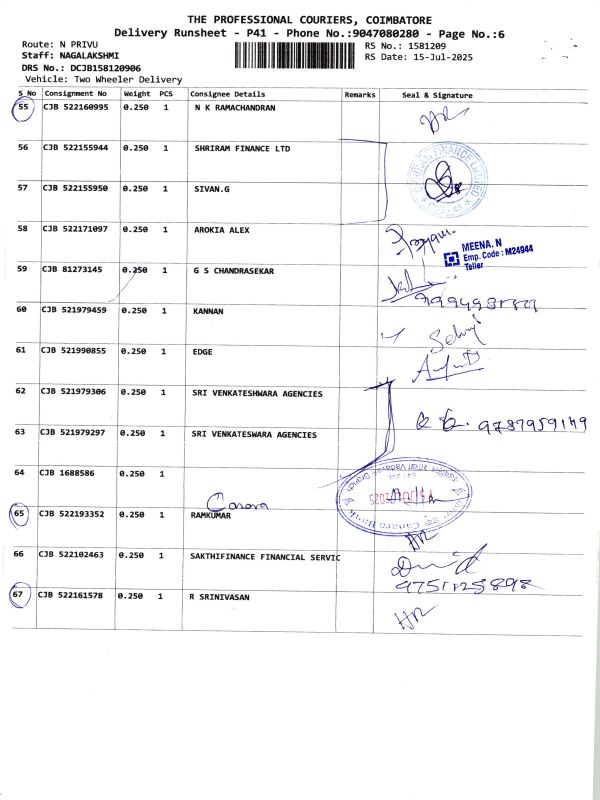 THE PROFESSIONAL COURIERS, COIMBATORE
Delivery Runsheet - P41 - Phone No.:9047080280 - Page No.:6
Route: N PRIVU
RS No.: 1581209
Staff: NAGALAKSHMI
RS Date: 15-Jul-2025
DRS No.: DCJB158120906
Vehicle: Two Wheeler Delivery
S No Consignment No Weight PCS Consignee Details Remarks Seal & Signature
55 CJB 522160995 0.250 1 N K RAMACHANDRAN
56 CJB 522155944 0.250 1 SHRIRAM FINANCE LTD
FINANCE LIMITED
57 CJB 522155950 0.250 1 SIVAN.G
58 CJB 522171097 0.250 1 AROKIA ALEX
MEENA. N
Emp. Code : M24944
Teller
59 CJB 81273145 0.250 1 G S CHANDRASEKAR
60 CJB 521979459 0.250 1 KANNAN
61 CJB 521990855 0.250 1 EDGE
62 CJB 521979306 0.250 1 SRI VENKATESHWARA AGENCIES
9787959149
63 CJB 521979297 0.250 1 SRI VENKATESWARA AGENCIES
64 CJB 1688586 0.250 1
Canara
Canara Bank
65 CJB 522193352 0.250 1 RAMKUMAR
66 CJB 522102463 0.250 1 SAKTHIFINANCE FINANCIAL SERVIC
9751125898
67 CJB 522161578 0.250 1 R SRINIVASAN